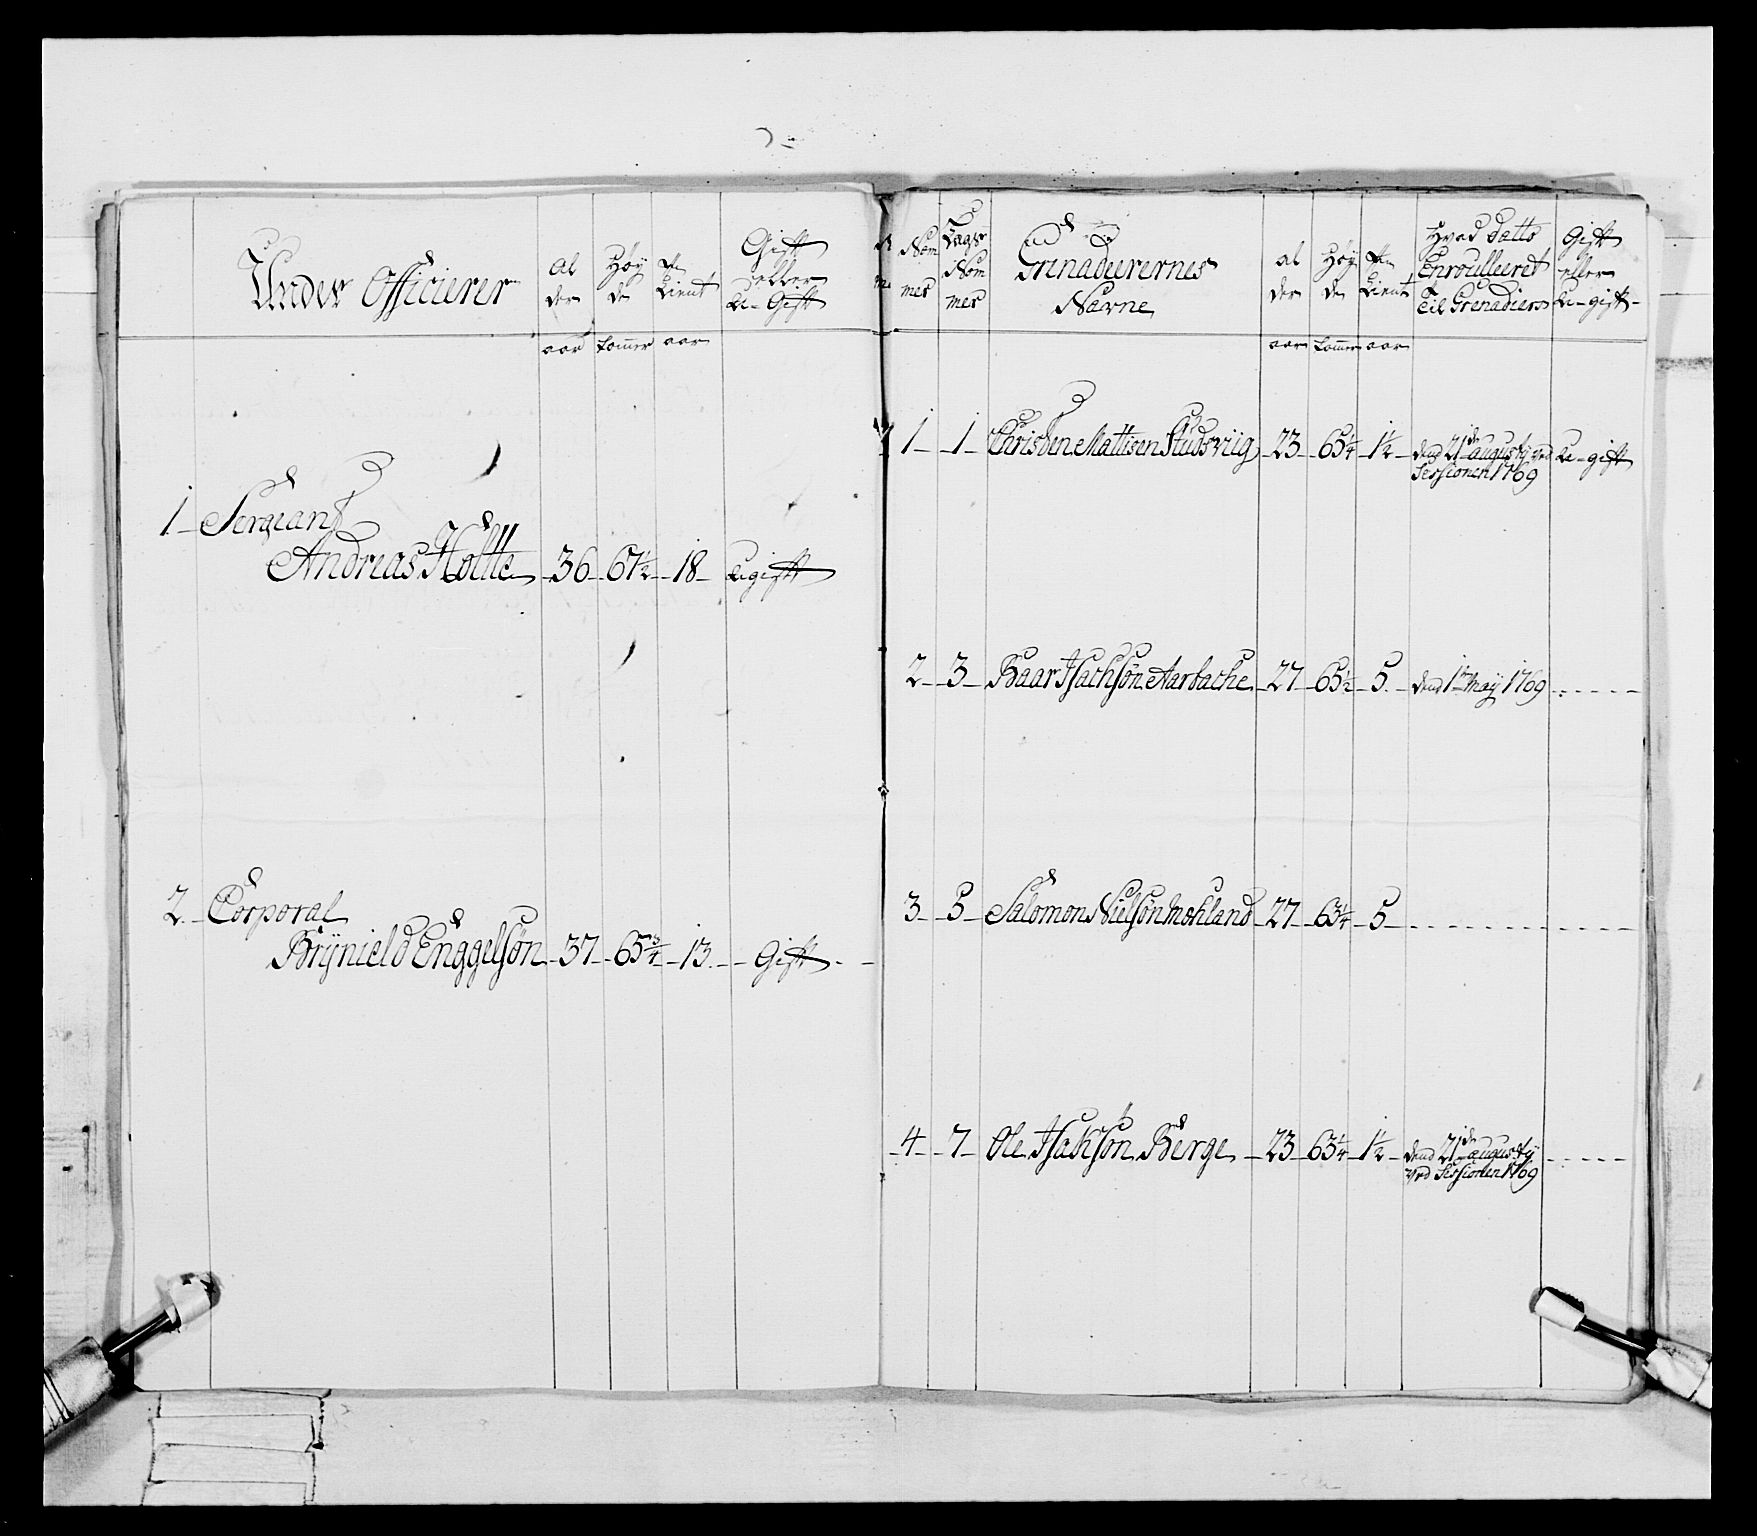 Under Officierer
Al
der
Høy
de
Tient
Gift
eller
U-Gift
aar tommer aar
1 Sergiant
Andreas Holtte 36 67½ 18 Ugift
2. Corporal
Brÿnield Enggelsøn 37 65¾ 13. Gift
Nom
mer
Laags
Nom
mer
Grenadeerernes
Navne
al
der
Høy
de
Tient
Hvad Datto
Enroulleeret
Til Grenadiers
Gift
eller
U-gift
aar tommer aar
1 1 Christen Mattisen Studsviig 23 65¼ 1½ dend 21de augustÿ ved U-gift
Sessionen 1769
2 3 Baar Isachsøn Aarbache 27 65½ 5. dend 1te Maÿ 1769
3 5 Salomon Nielsøn Mohland 27 63¼ 5
4 7 Ole Isaksøn Berge 23 63¼ 1½ dend 21de augustÿ
ved Sessionen 1769